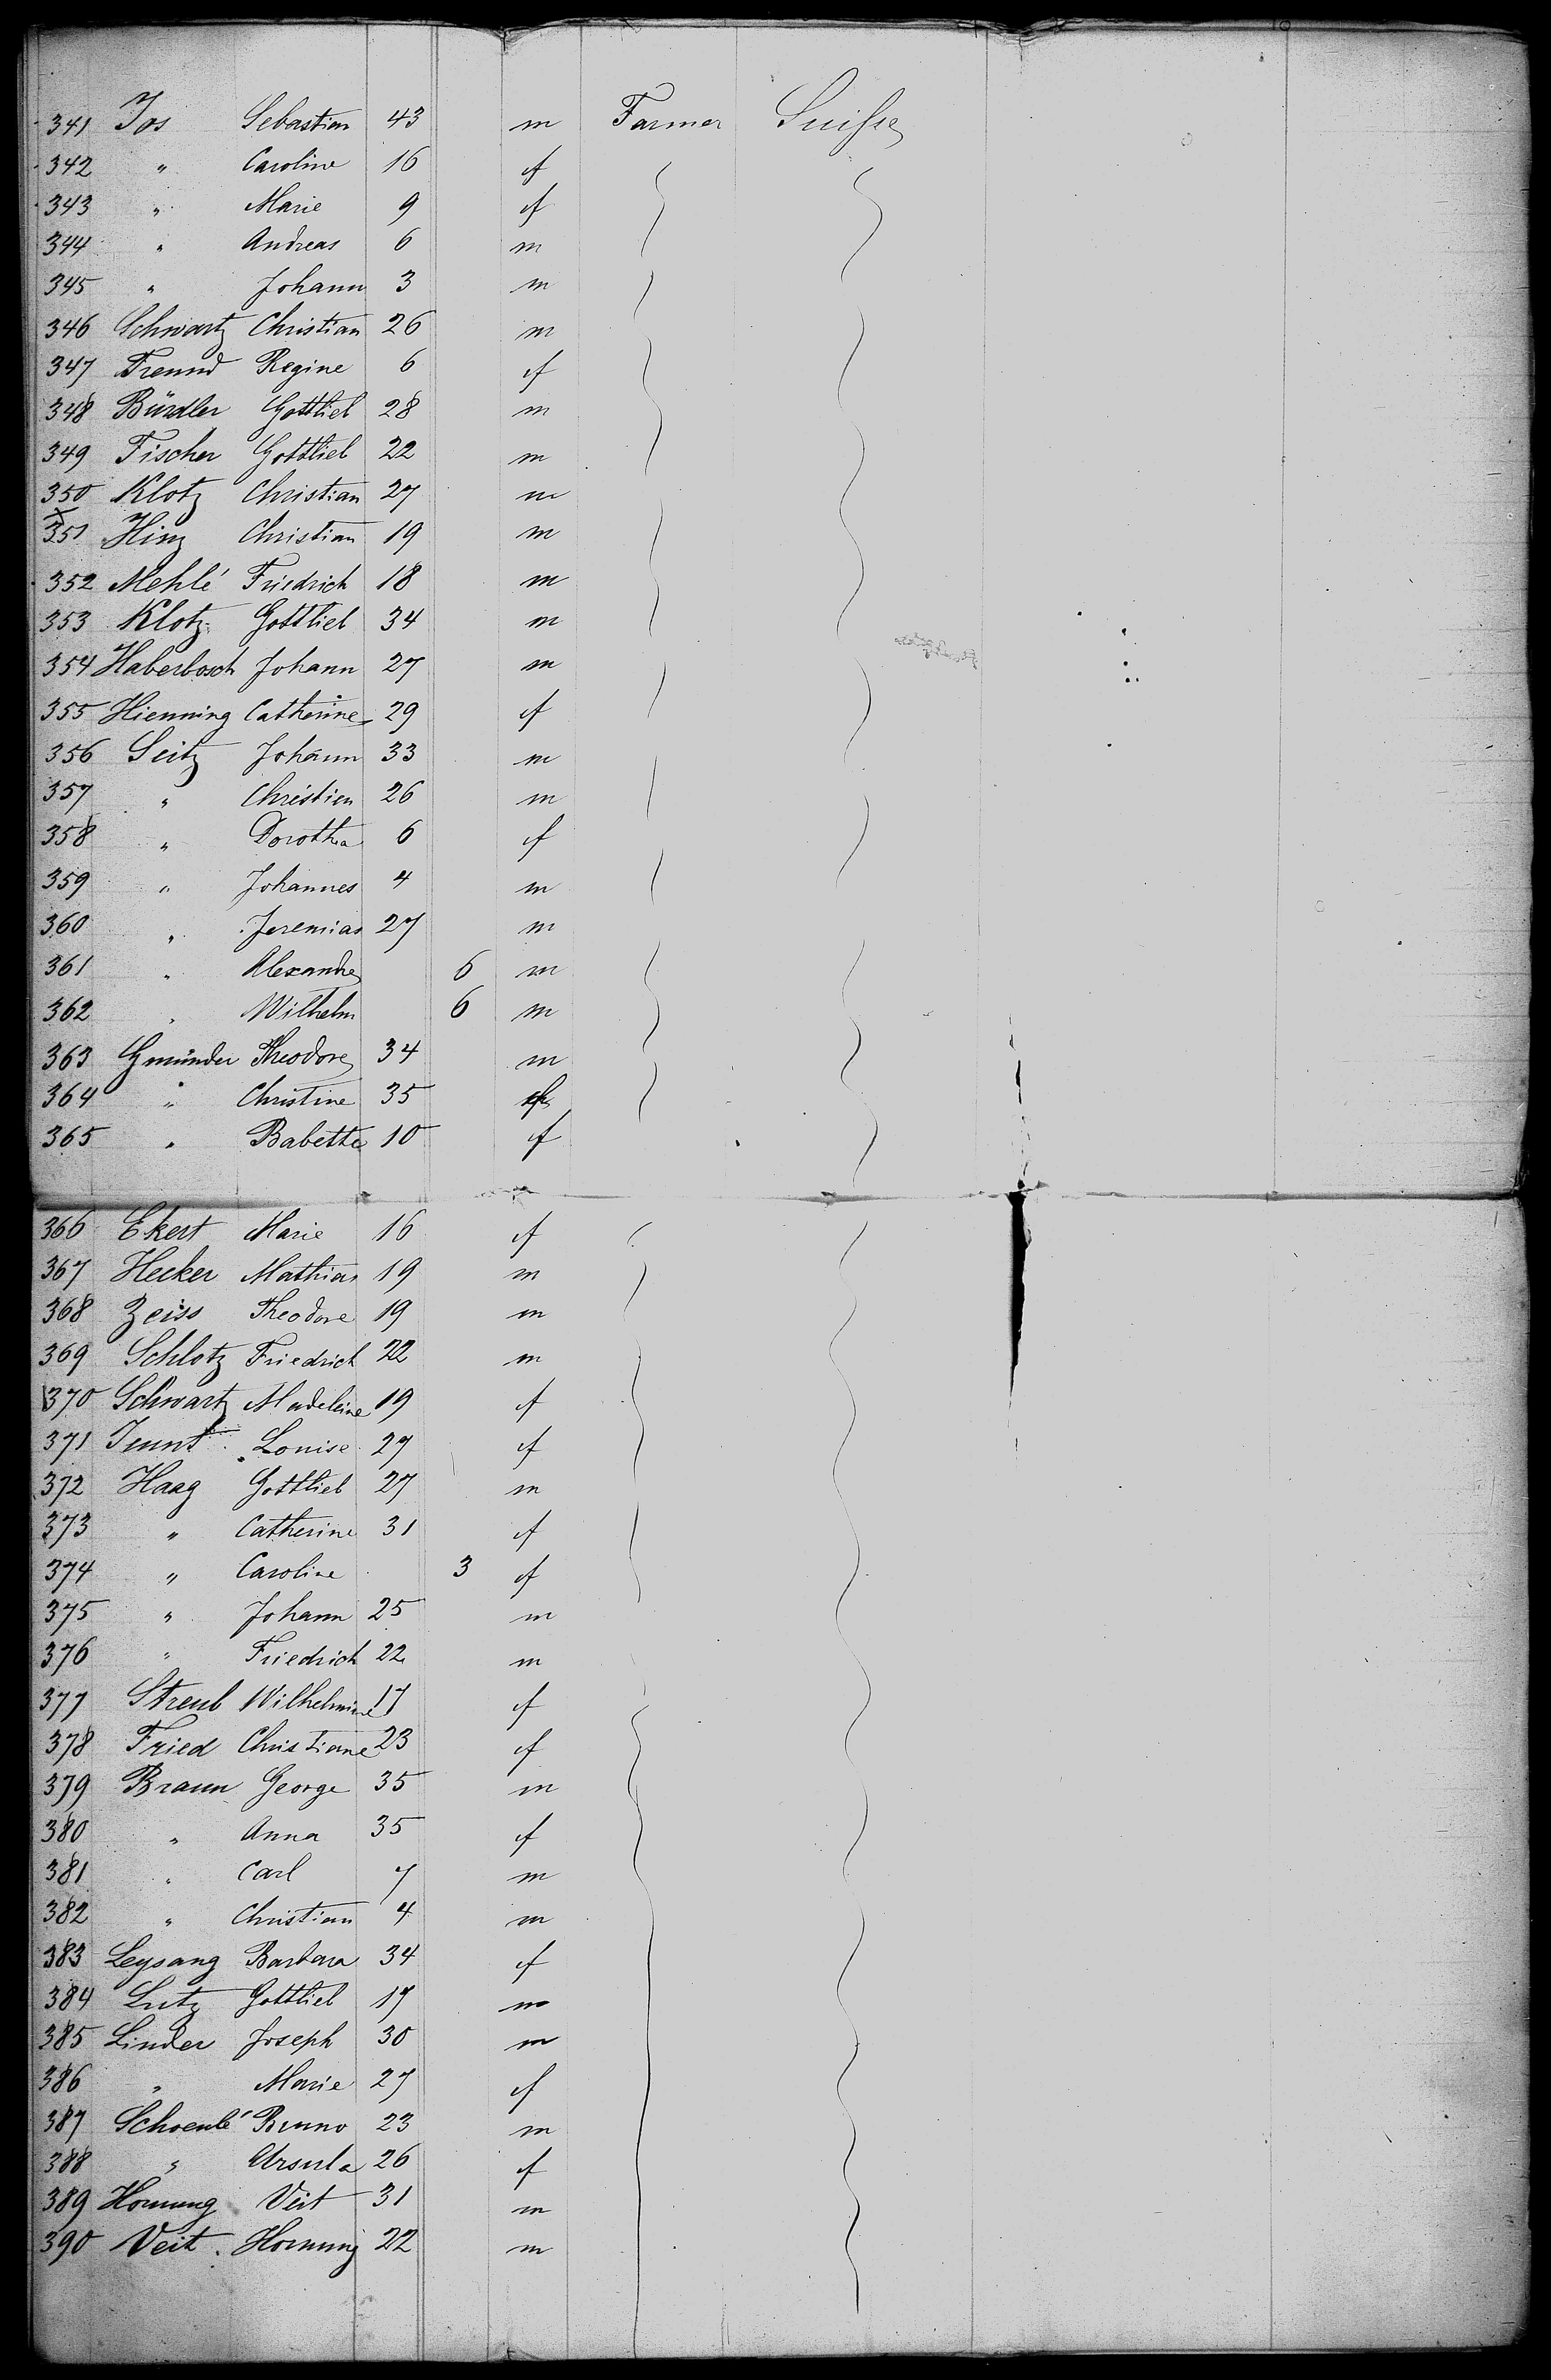 341 Jos Sebastian 43 m Farmer Suisse
342 " Caroline 16 f
343 " Marie 9 f
344 " Andreas 6 m
345 " Johann 3 m
346 Schwartz Christian 26 m
347 Freund Regine 6 f
348 Bürdler Gottlieb 28 m
349 Fischer Gottlieb 22 m
350 Klotz Christian 27 m
x 351 Hinz Christian 19 m
352 Mehlé Friedrich 18 m
353 Klotz Gottlieb 34 m
354 Haberbosch Johann 27 m
355 Hienning Catherine 29 f
356 Seitz Johann 33 m
357 " Christien 26 m
358 " Dorothea 6 f
359 " Johannes 4 m
360 " Jeremias 27 m
361 " Alexandre 6 m
362 " Wilhelm 6 m
363 Gmünder Theodore 34 m
364 " Christine 35 f
365 " Babette 10 f
366 Ekert Marie 16 f
367 Hecker Mathias 19 m
368 Zeiss Theodore 19 m
369 Schlotz Friedrich 22 m
370 Schwartz Madeleine 19 f
371 Louise 27 f
372 Haag Gottlieb 27 m
373 " Catherine 31 f
374 " Caroline 3 f
375 " Johann 25 m
376 " Friedrich 22 m
377 Streub Wilhelmine 17 f
378 Fried Christiane 23 f
379 Braun George 35 m
380 " Anna 35 f
381 " Carl 7 m
382 " Christian 4 m
383 Leysang Barbara 34 f
384 Lutz Gottlieb 17 m
385 Linder Joseph 30 m
386 " Marie 27 f
387 Schoenlé Bruno 23 m
388 " Ursula 26 f
389 Hornung Veit 31 m
390 Veit Hornung 22 m